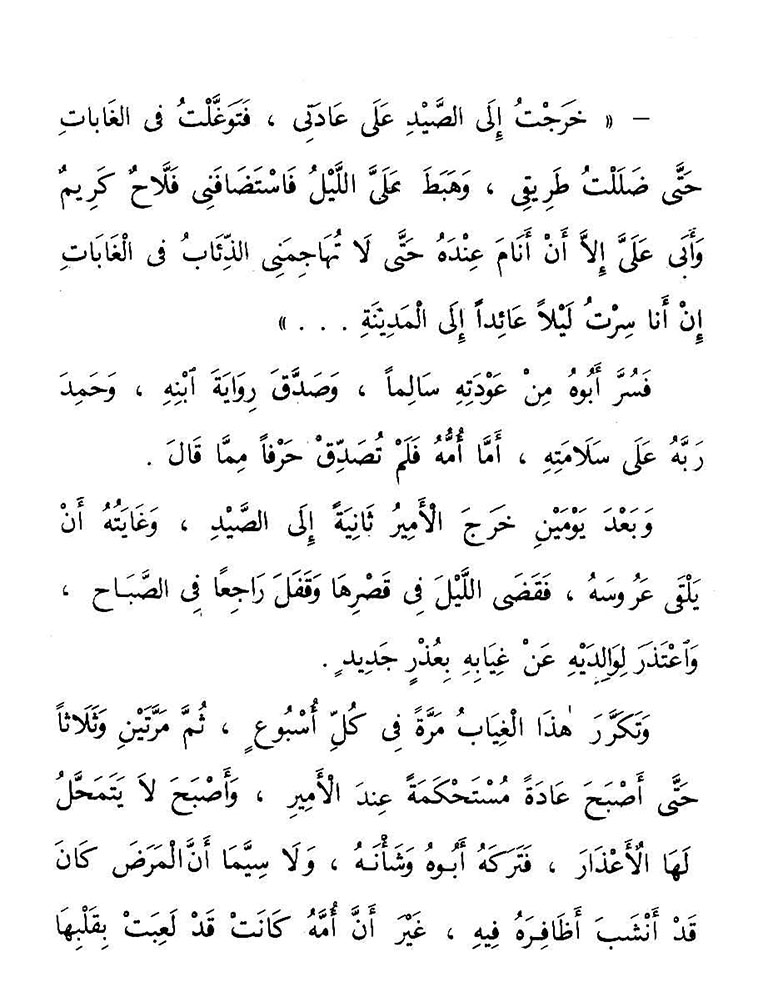 – « خَرَجْتُ إِلَى الصَّيْدِ عَلَى عَادَتِى ، فَتَوَغَّلْتُ فى الغَابَاتِ
حَتَّى ضَلَلْتُ طَرِيقِى ، وَهَبَطَ عَلَىَّ اللَّيْلُ فَاسْتَضَافَنِى فَلَّاحٌ كَرِيمٌ
وَأَبَى عَلَىَّ إِلاَّ أَنْ أَنَامَ عِنْدَهُ حَتَّى لَا تُهَاجِمَنِى الذِّئَابُ فى الْغَابَاتِ
إِنْ أَنا سِرْتُ لَيْلاً عَائِداً إِلَى الْمَدِينَةِ . . . »
فَسُرَّ أَبُوهُ مِنْ عَوْدَتِهِ سَالِماً ، وَصَدَّقَ رِوَايَةَ ٱبْنِهِ ، وَحَمِدَ
رَبَّهُ عَلَى سَلَامَتِهِ ، أَمَّا أُمُّهُ فَلَمْ تُصَدِّقْ حَرْفاً مِمَّا قَالَ .
وَبَعْدَ يَوْمَيْنِ خَرَجَ الْأَمِيرُ ثَانِيَةً إِلَى الصَّيْدِ ، وَغَايَتُهُ أَنْ
يَلْقَى عَرُوسَهُ ، فَقَضَى اللَّيْلَ فِى قَصْرِهَا وَقَفَلَ رَاجِعًا فِى الصَّبَاحِ ،
وَٱعْتَذَرَ لِوَالِدَيْهِ عَنْ غِيَابِهِ بِعُذْرٍ جَدِيدٍ .
وَتَكَرَّرَ هٰذَا الْغِيَابُ مَرَّةً فِى كُلِّ أُسْبُوعٍ ، ثُمَّ مَرَّتَيْنِ وَثَلَاثاً
حَتَّى أَصْبَحَ عَادَةً مُسْتَحْكَمَةً عِندَ الْأَمِيرِ ، وَأَصْبَحَ لاَ يَتَمَحَّلُ
لَهَا الْأَعْذَارَ ، فَتَرَكَهُ أَبُوهُ وَشَأْنَهُ ، وَلَا سِيَّمَا أَنَّ الْمَرَضَ كَانَ
قَدْ أَنْشَبَ أَظَافِرَهُ فِيهِ ، غَيْرَ أَنَّ أُمَّهُ كَانَتْ قَدْ لَعِبَتْ بِقَلْبِهَا